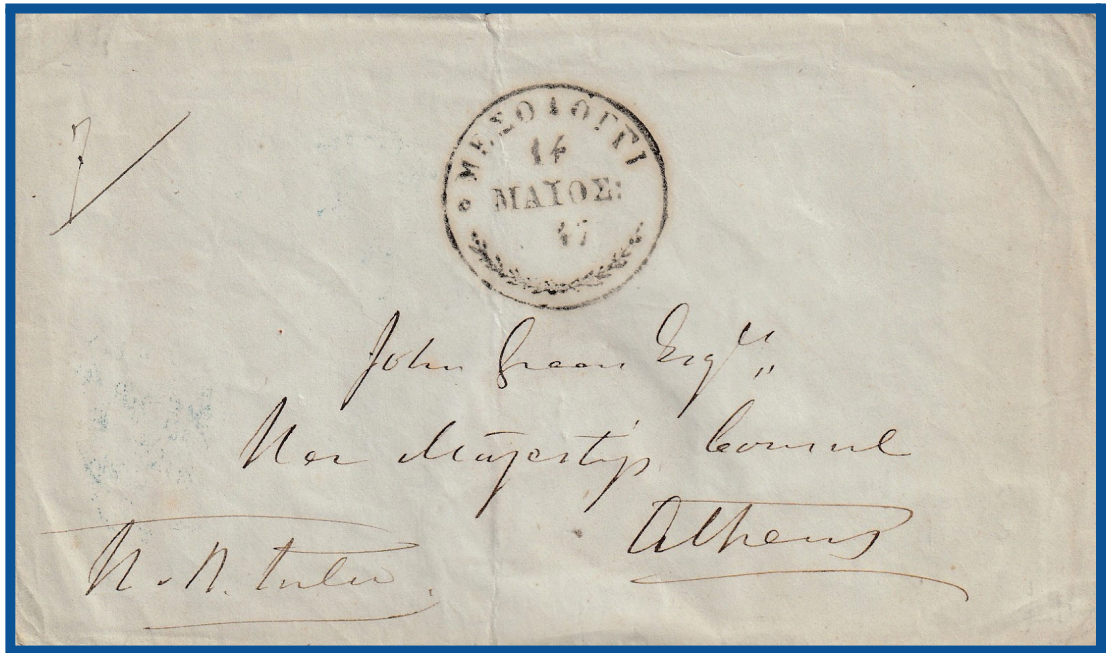 ΜΕΣΟΛΟΓΓΙ
14
ΜΑΪΟΣ:
47
John Green Esqre,,
Her Majesty's Consul
Athens